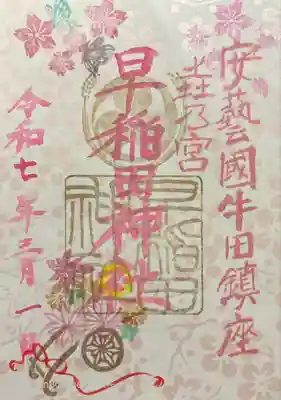 安藝國牛田鎮座
乃宮
早稲田神社
令和七年三月一日